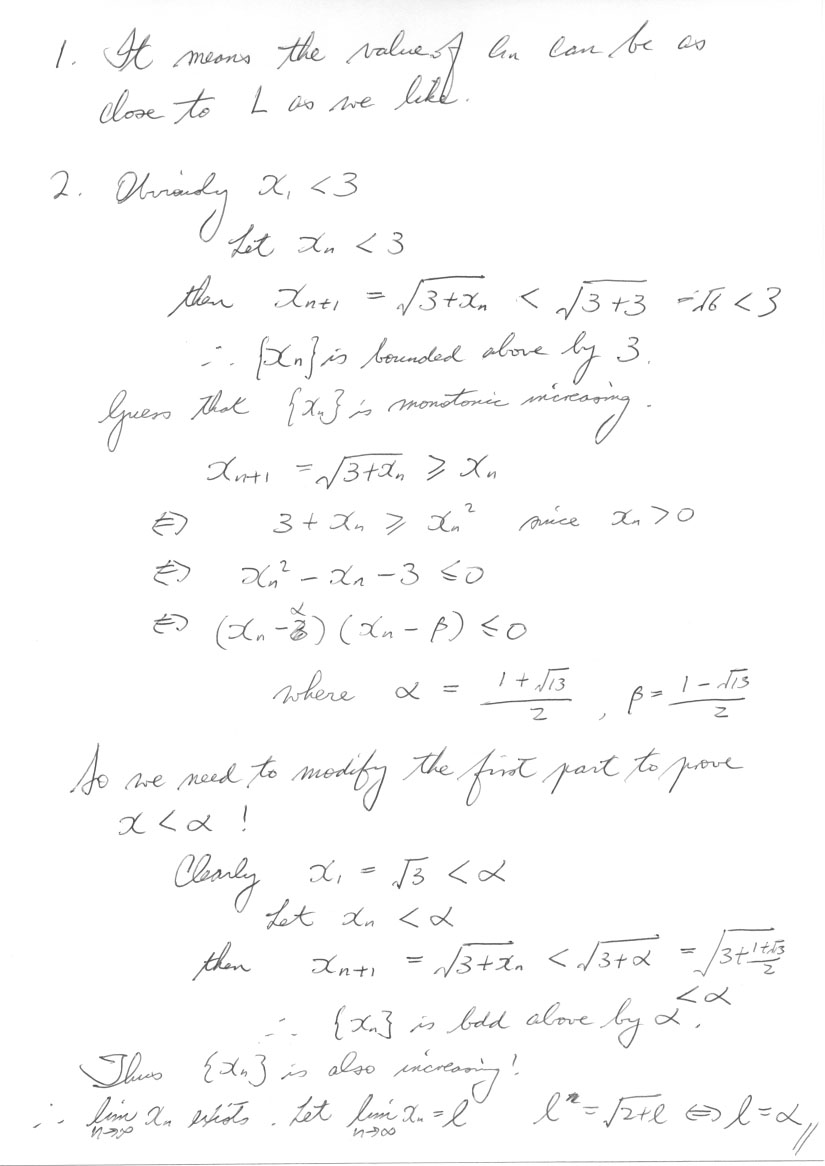 1. It means the value of an can be as
close to L as we like.
2. Obviously x₁ < 3
Let xₙ < 3
then xₙ₊₁ = √(3+xₙ) < √(3+3) = √6 < 3
∴ {xₙ} is bounded above by 3.
Guess that {xₙ} is monotonic increasing.
xₙ₊₁ = √(3+xₙ) ⩾ xₙ
⇔ 3 + xₙ ⩾ xₙ² since xₙ > 0
⇔ xₙ² − xₙ − 3 ≤ 0
⇔ (xₙ − α)(xₙ − β) ≤ 0
where α = (1+√13)/2 , β = (1−√13)/2
So we need to modify the first part to prove
x < α !
Clearly x₁ = √3 < α
Let xₙ < α
then xₙ₊₁ = √(3+xₙ) < √(3+α) = √(3+(1+√13)/2)
< α
∴ {xₙ} is bdd above by α.
Thus {xₙ} is also increasing!
∴ lim n→∞ xₙ exists. Let lim n→∞ xₙ = l l = √(2+l) ⇔ l = α //